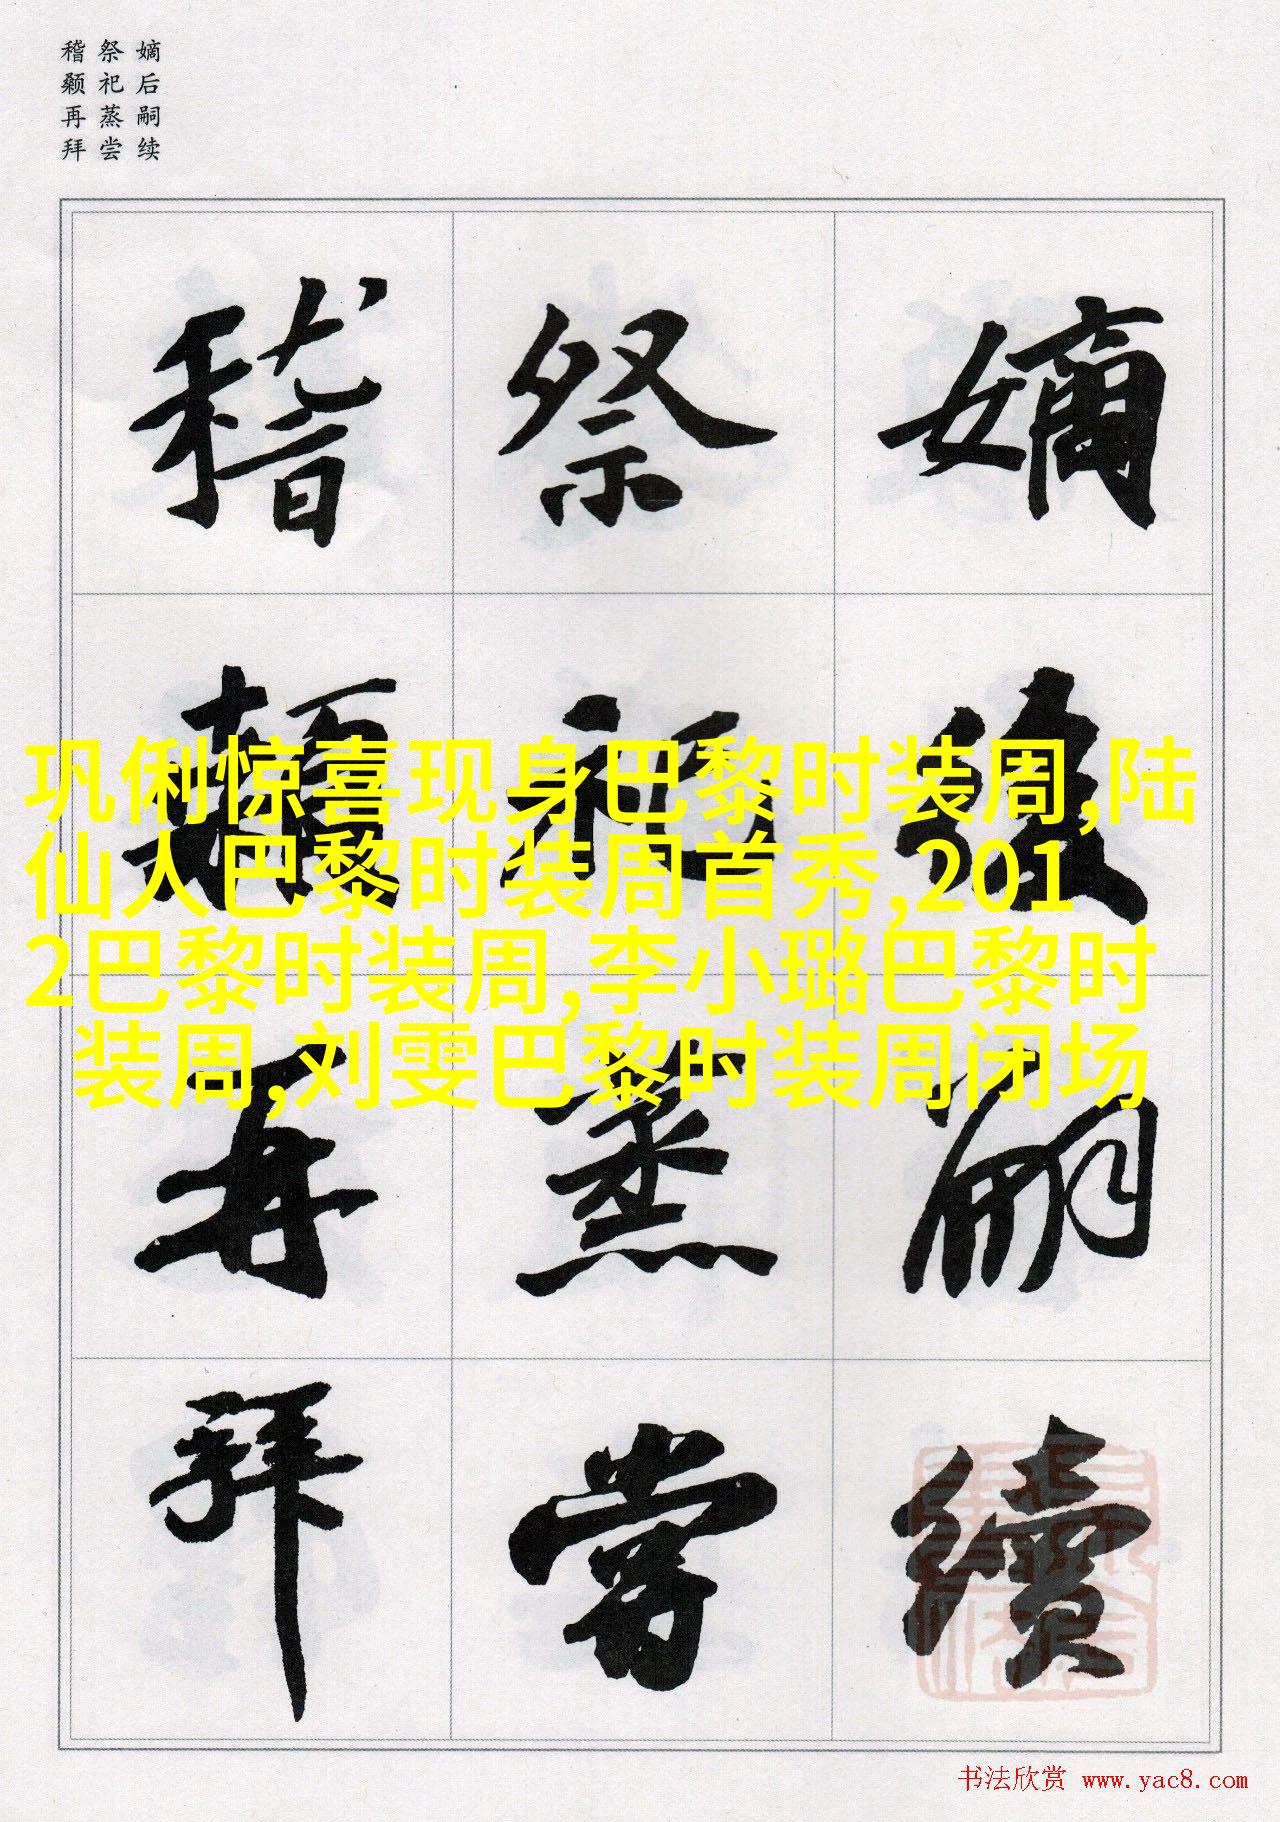 嫡后嗣续
祭祀蒸尝
稽颡再拜
嫡後嗣續
祭祀蒸嘗
稽顙再拜
巩俐惊喜现身巴黎时装周,陆
仙人巴黎时装周首秀,201
2巴黎时装周,李小璐巴黎时
装周,刘雯巴黎时装周闭场
书法欣赏 www.yac8.com